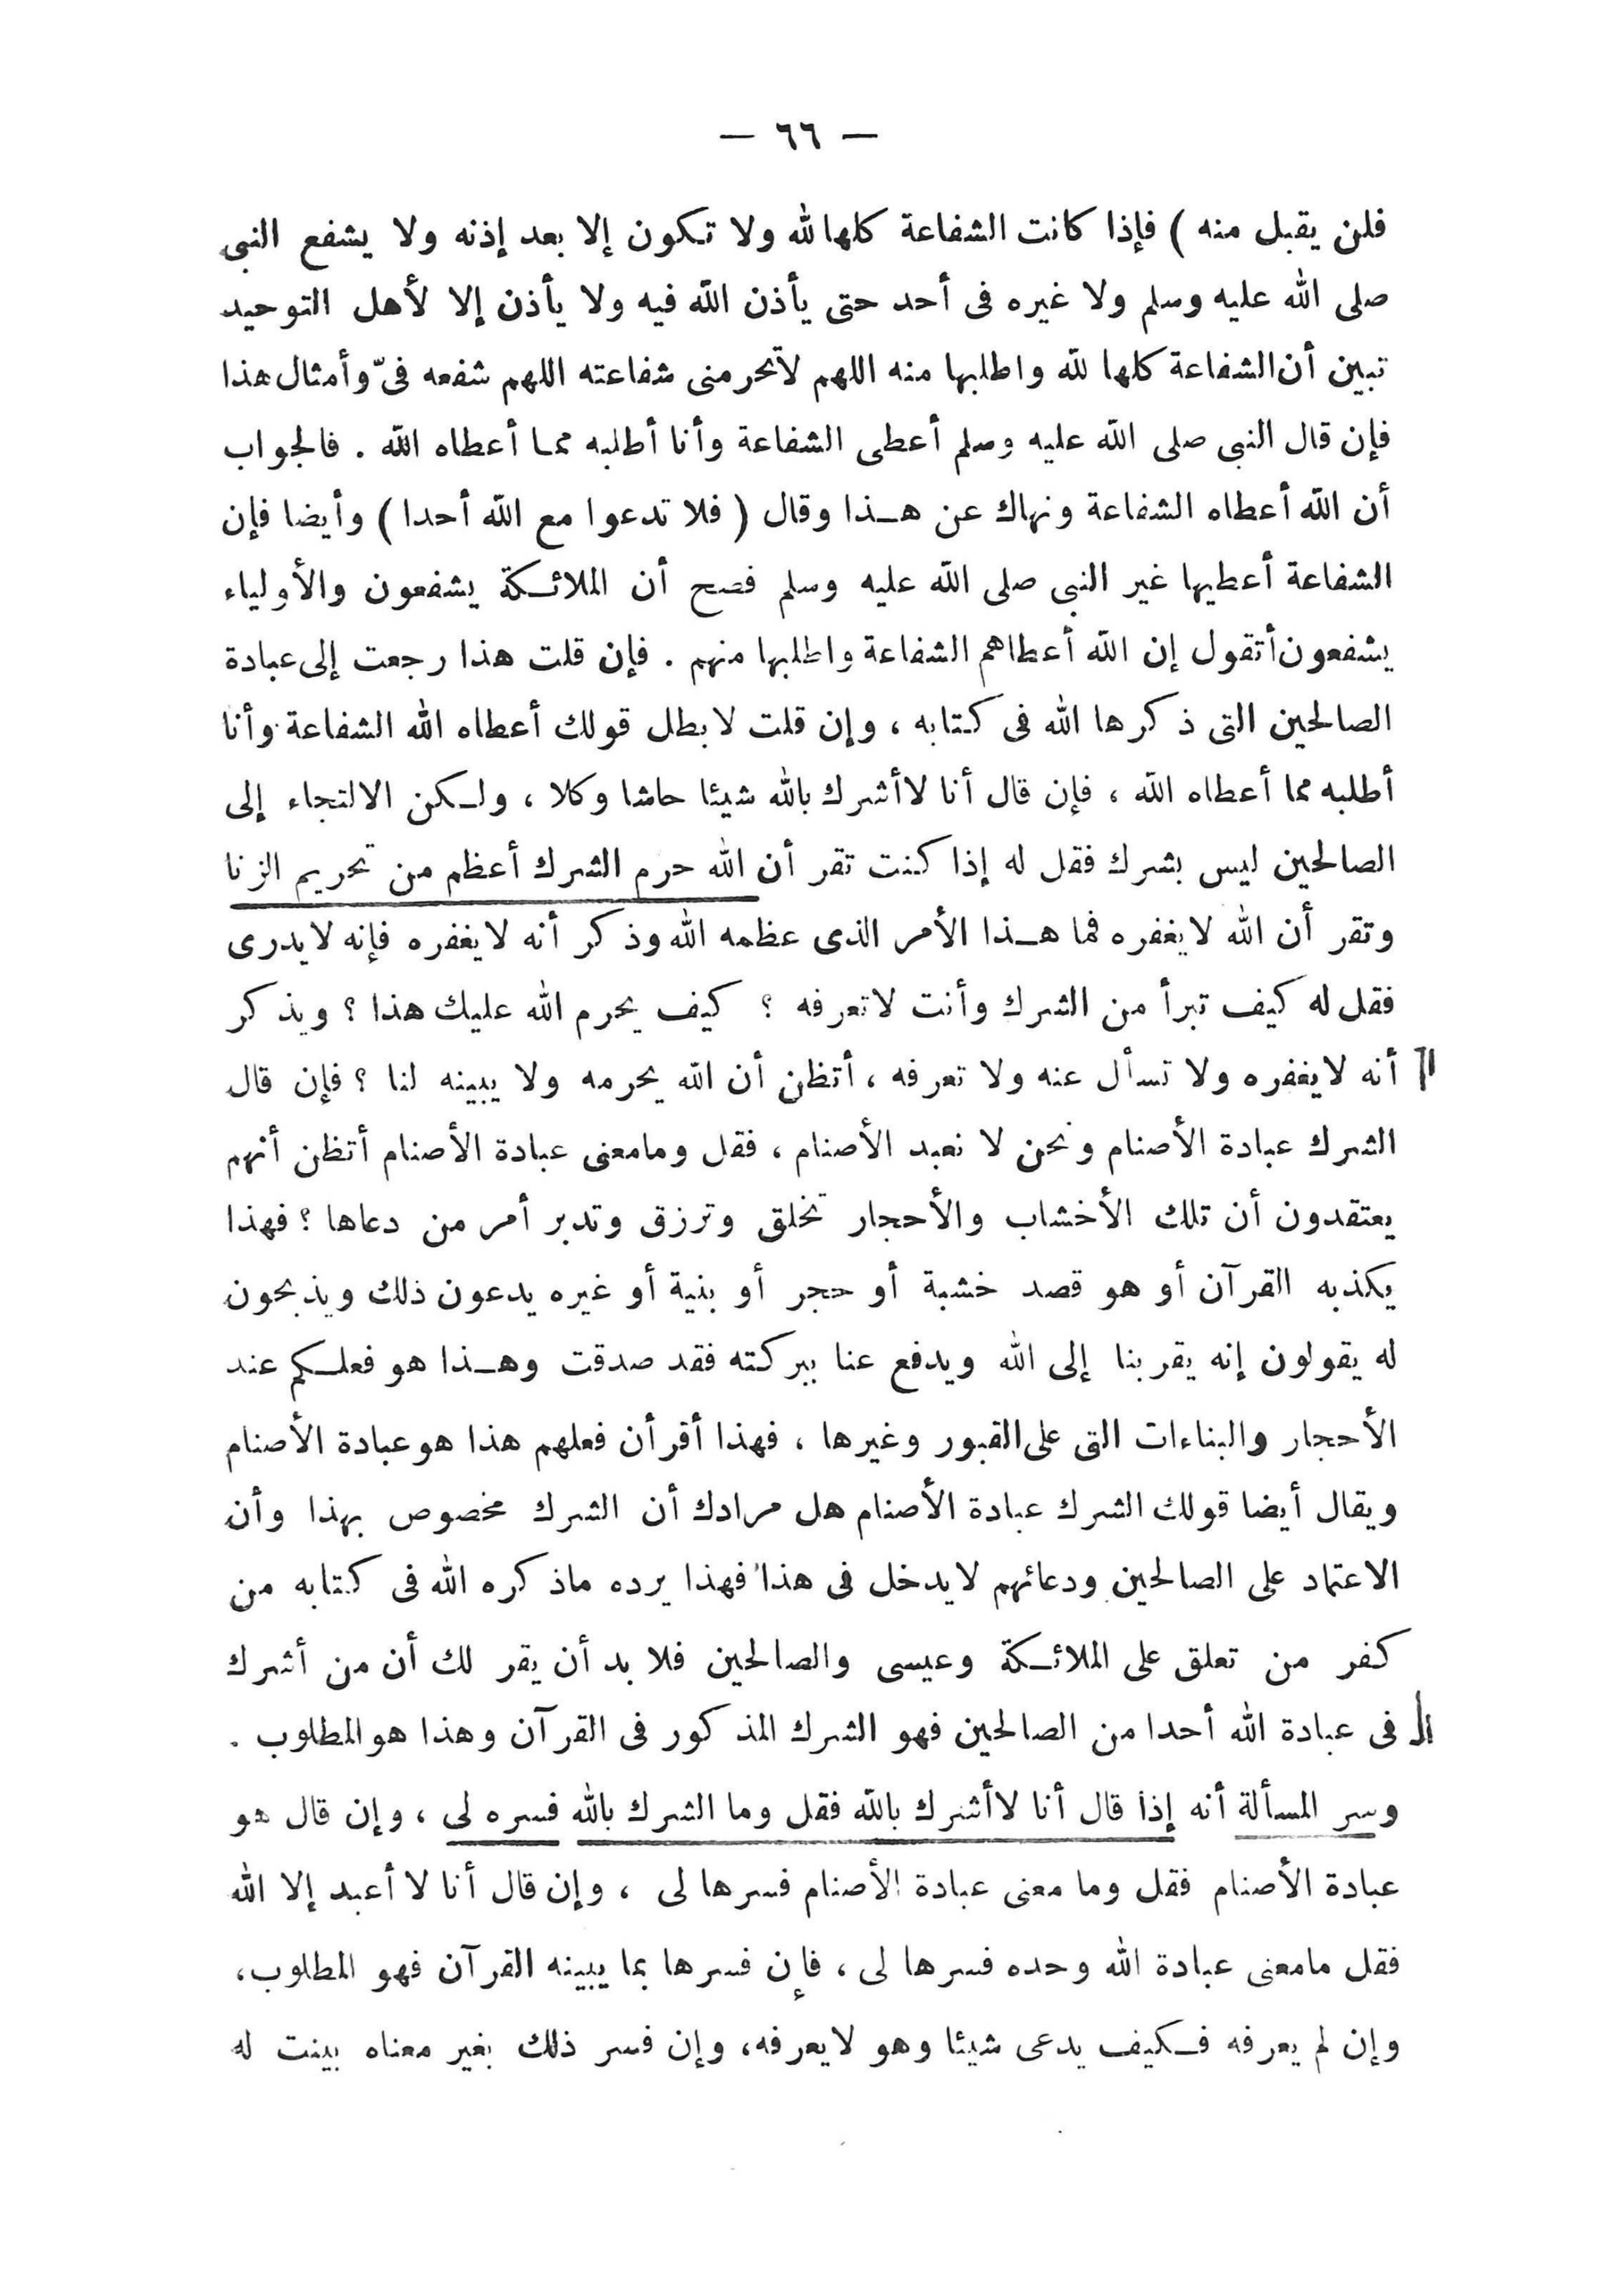 — ٦٦ —
فلن يقبل منه ) فإذا كانت الشفاعة كلها لله ولا تكون إلا بعد إذنه ولا يشفع النبى
صلى الله عليه وسلم ولا غيره فى أحد حتى يأذن الله فيه ولا يأذن إلا لأهل التوحيد
تبين أن الشفاعة كلها لله واطلبها منه اللهم لاتحرمنى شفاعته اللهم شفعه فىّ وأمثال هذا
فإن قال النبى صلى الله عليه وسلم أعطى الشفاعة وأنا أطلبه مما أعطاه الله . فالجواب
أن الله أعطاه الشفاعة ونهاك عن هـذا وقال ( فلا تدعوا مع الله أحدا ) وأيضا فإن
الشفاعة أعطيها غير النبى صلى الله عليه وسلم فصح أن الملائكة يشفعون والأولياء
يشفعون أتقول إن الله أعطاهم الشفاعة واطلبها منهم . فإن قلت هذا رجعت إلى عبادة
الصالحين التى ذكرها الله فى كتابه ، وإن قلت لا بطل قولك أعطاه الله الشفاعة وأنا
أطلبه مما أعطاه الله ، فإن قال أنا لاأشرك بالله شيئا حاشا وكلا ، ولـكن الالتجاء إلى
الصالحين ليس بشرك فقل له إذا كنت تقر أن الله حرم الشرك أعظم من تحريم الزنا
وتقر أن الله لايغفره فما هـذا الأمر الذى عظمه الله وذكر أنه لايغفره فإنه لايدرى
فقل له كيف تبرأ من الشرك وأنت لاتعرفه ؟ كيف يحرم الله عليك هذا ؟ ويذكر
أنه لايغفره ولا تسأل عنه ولا تعرفه ، أتظن أن الله يحرمه ولا يبينه لنا ؟ فإن قال
الشرك عبادة الأصنام ونحن لا نعبد الأصنام ، فقل ومامعنى عبادة الأصنام أتظن أنهم
يعتقدون أن تلك الأخشاب والأحجار تخلق وترزق وتدبر أمر من دعاها ؟ فهذا
يكذبه القرآن أو هو قصد خشبة أو حجر أو بنية أو غيره يدعون ذلك ويذبحون
له يقولون إنه يقربنا إلى الله ويدفع عنا ببركته فقد صدقت وهـذا هو فعلـكم عند
الأحجار والبناءات التى على القبور وغيرها ، فهذا أقر أن فعلهم هذا هو عبادة الأصنام
ويقال أيضا قولك الشرك عبادة الأصنام هل مرادك أن الشرك مخصوص بهذا وأن
الاعتماد على الصالحين ودعائهم لايدخل فى هذا فهذا يرده ماذكره الله فى كتابه من
كفر من تعلق على الملائـكة وعيسى والصالحين فلا بد أن يقر لك أن من أشرك
فى عبادة الله أحدا من الصالحين فهو الشرك المذكور فى القرآن وهذا هو المطلوب .
وسر المسألة أنه إذا قال أنا لاأشرك بالله فقل وما الشرك بالله فسره لى ، وإن قال هو
عبادة الأصنام فقل وما معنى عبادة الأصنام فسرها لى ، وإن قال أنا لا أعبد إلا الله
فقل مامعنى عبادة الله وحده فسرها لى ، فإن فسرها بما يبينه القرآن فهو المطلوب،
وإن لم يعرفه فـكيف يدعى شيئا وهو لايعرفه، وإن فسر ذلك بغير معناه بينت له